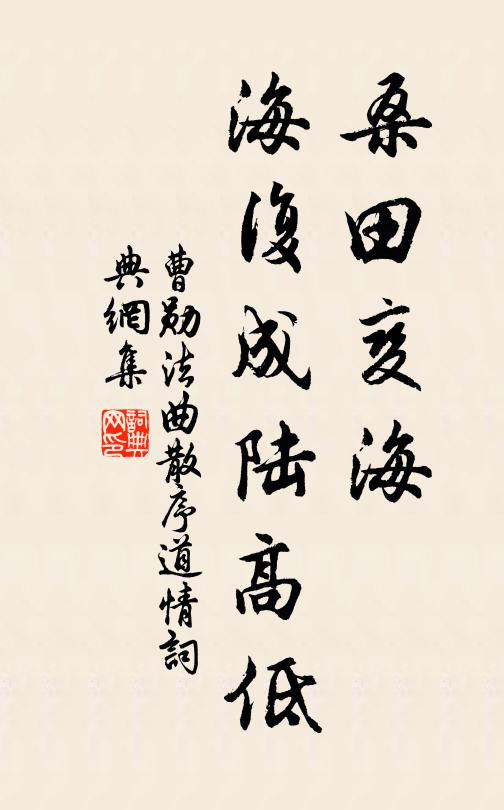 桑田变海
海復成陆高低
曹勋法曲散序道情詞
典網集
詞典网印